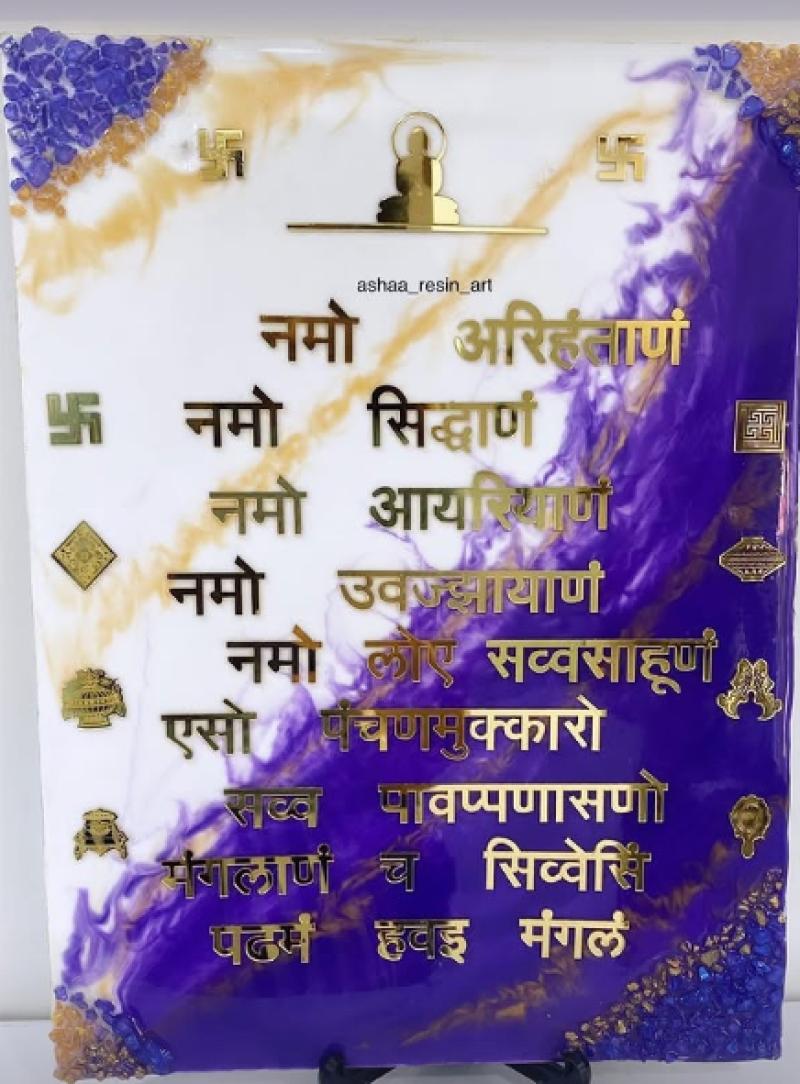 ashaa_resin_art
नमो अरिहंताणं
नमो सिद्धाणं
नमो आयरियाणं
नमो उवज्झायाणं
नमो लोए सव्वसाहूणं
एसो पंचणमुक्कारो
सव्व पावप्पणासणो
मंगलाणं च सिव्वेसिं
पढमं हवइ मंगलं